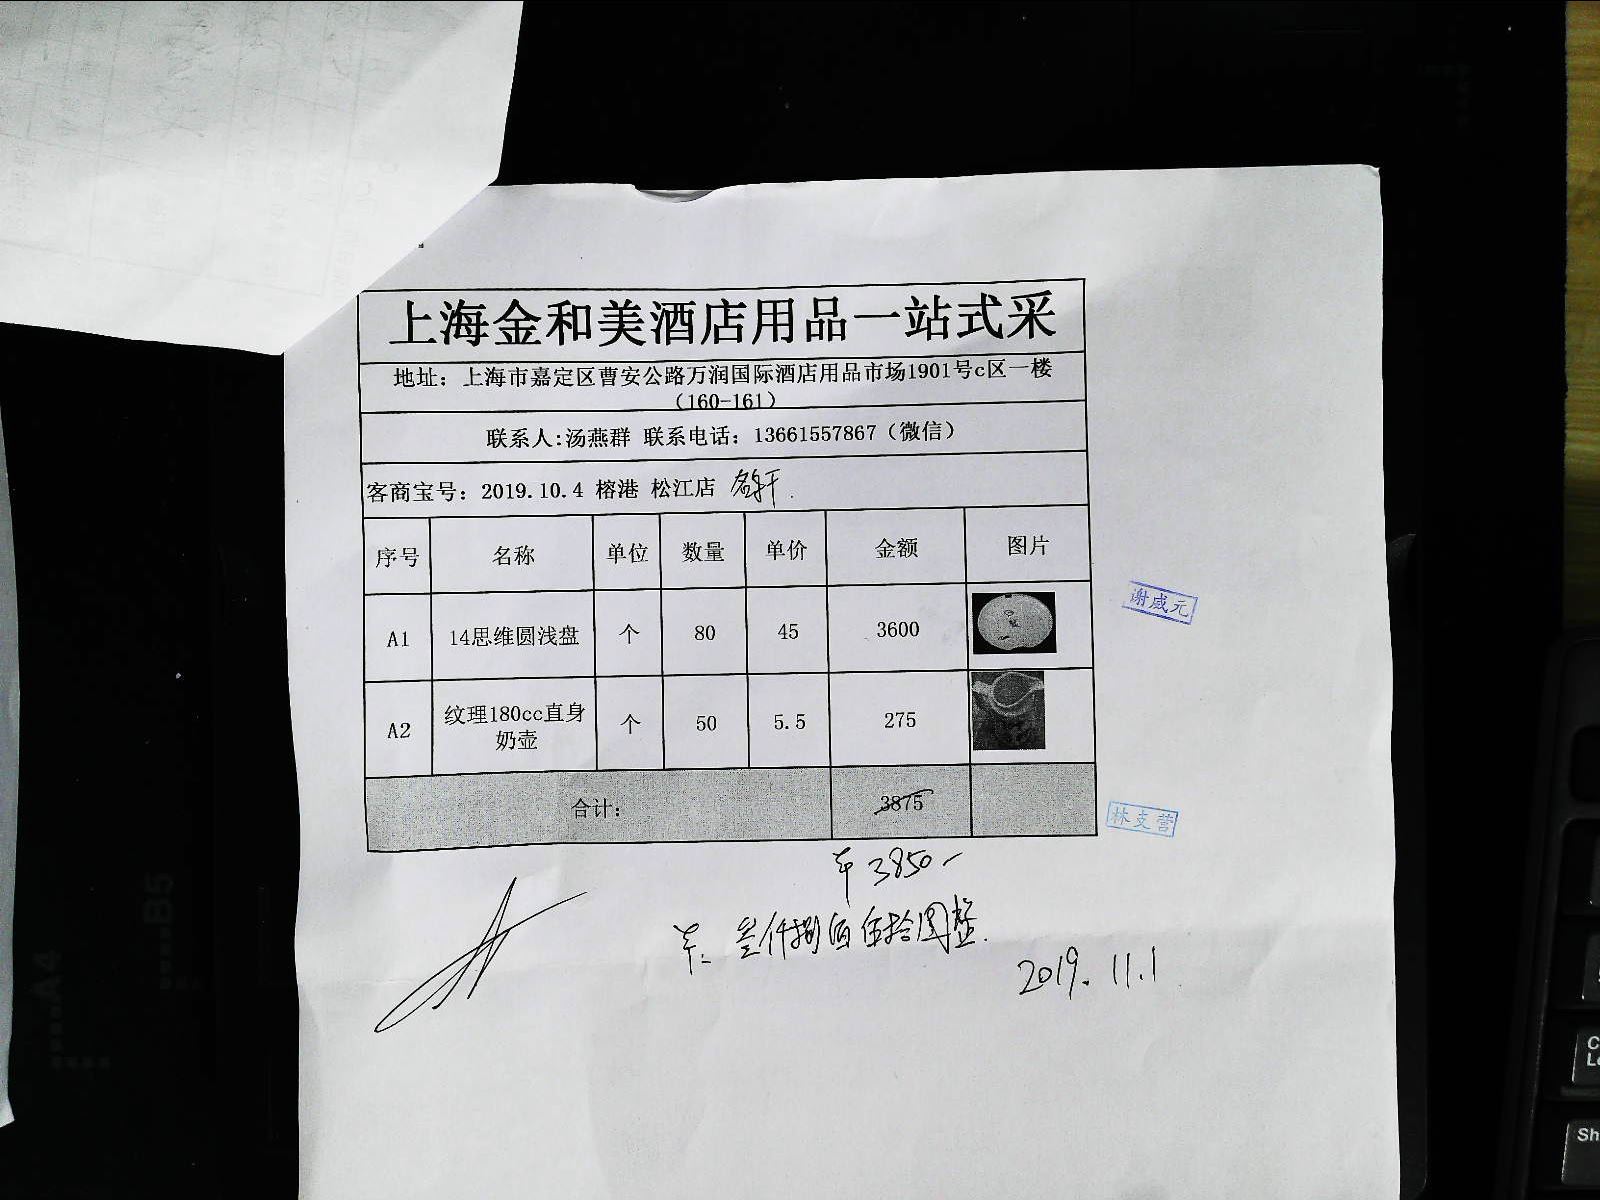 上海金和美酒店用品一站式采
地址：上海市嘉定区曹安公路万润国际酒店用品市场1901号c区一楼
（160-161）
联系人:汤燕群 联系电话：13661557867（微信）
客商宝号：2019.10.4 榕港 松江店
序号 名称 单位 数量 单价 金额 图片
谢咸元
A1 14思维圆浅盘 个 80 45 3600
A2 纹理180cc直身奶壶 个 50 5.5 275
合计： 3875
林支营
¥3850-
叁仟捌佰伍拾圆整.
2019.11.1
B5
A4